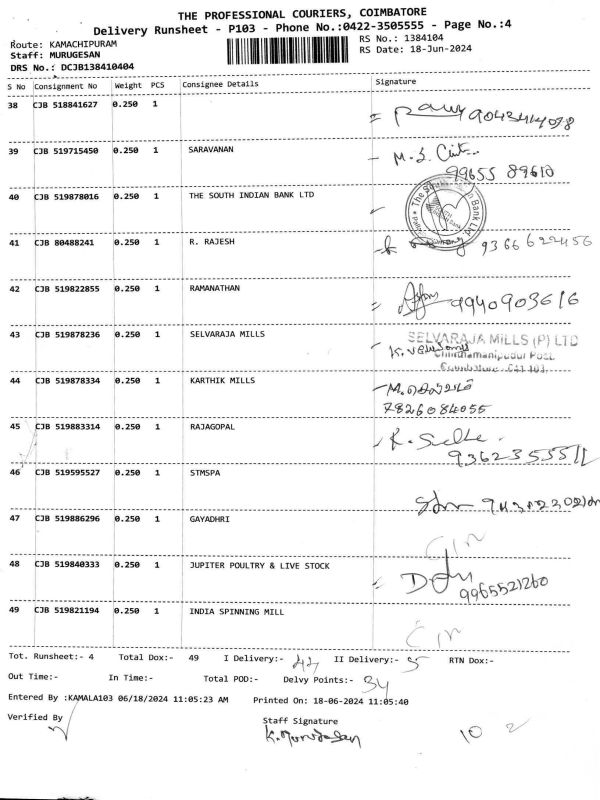 THE PROFESSIONAL COURIERS, COIMBATORE
Delivery Runsheet - P103 - Phone No.:0422-3505555 - Page No.:4
Route: KAMACHIPURAM
RS No.: 1384104
Staff: MURUGESAN
RS Date: 18-Jun-2024
DRS No.: DCJB138410404
S No Consignment No Weight PCS Consignee Details Signature
38 CJB 518841627 0.250 1
39 CJB 519715450 0.250 1 SARAVANAN M.S.
99655 89610
40 CJB 519878016 0.250 1 THE SOUTH INDIAN BANK LTD
41 CJB 80488241 0.250 1 R. RAJESH 9366622456
42 CJB 519822855 0.250 1 RAMANATHAN 9940903616
43 CJB 519878236 0.250 1 SELVARAJA MILLS SELVARAJA MILLS (P) LTD
Chinthamanipudur Post,
Coimbatore - 641 103.
44 CJB 519878334 0.250 1 KARTHIK MILLS M. செல்வம்
7826084055
45 CJB 519883314 0.250 1 RAJAGOPAL
46 CJB 519595527 0.250 1 STMSPA
47 CJB 519886296 0.250 1 GAYADHRI
48 CJB 519840333 0.250 1 JUPITER POULTRY & LIVE STOCK
9965521260
49 CJB 519821194 0.250 1 INDIA SPINNING MILL
Tot. Runsheet:- 4 Total Dox:- 49 I Delivery:- 44 II Delivery:- 5 RTN Dox:-
Out Time:- In Time:- Total POD:- Delvy Points:- 34
Entered By :KAMALA103 06/18/2024 11:05:23 AM Printed On: 18-06-2024 11:05:40
Verified By Staff Signature
K. Murugesan
10 2